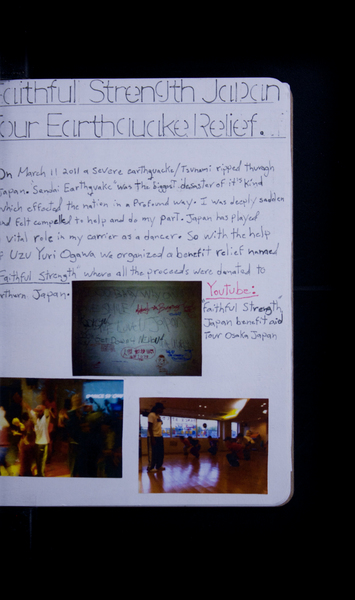 Faithful Strength Japan
Tour Earthquake Relief...
On March 11 2011 a severe earthquake/Tsunami ripped through
Japan. Sendai Earthquake "was the biggest desaster of it's kind
which effected the nation in a Profound way. I was deeply sadden
and felt compelled to help and do my part. Japan has played
a vital role in my carrier as a dancer. So with the help
of Uzu Yuri Ogawa we organized a benefit relief named
"Faithful Strength" where all the proceeds were donated to
northern Japan.
Youtube:
"Faithful Strength"
Japan benefit aid
Tour Osaka Japan